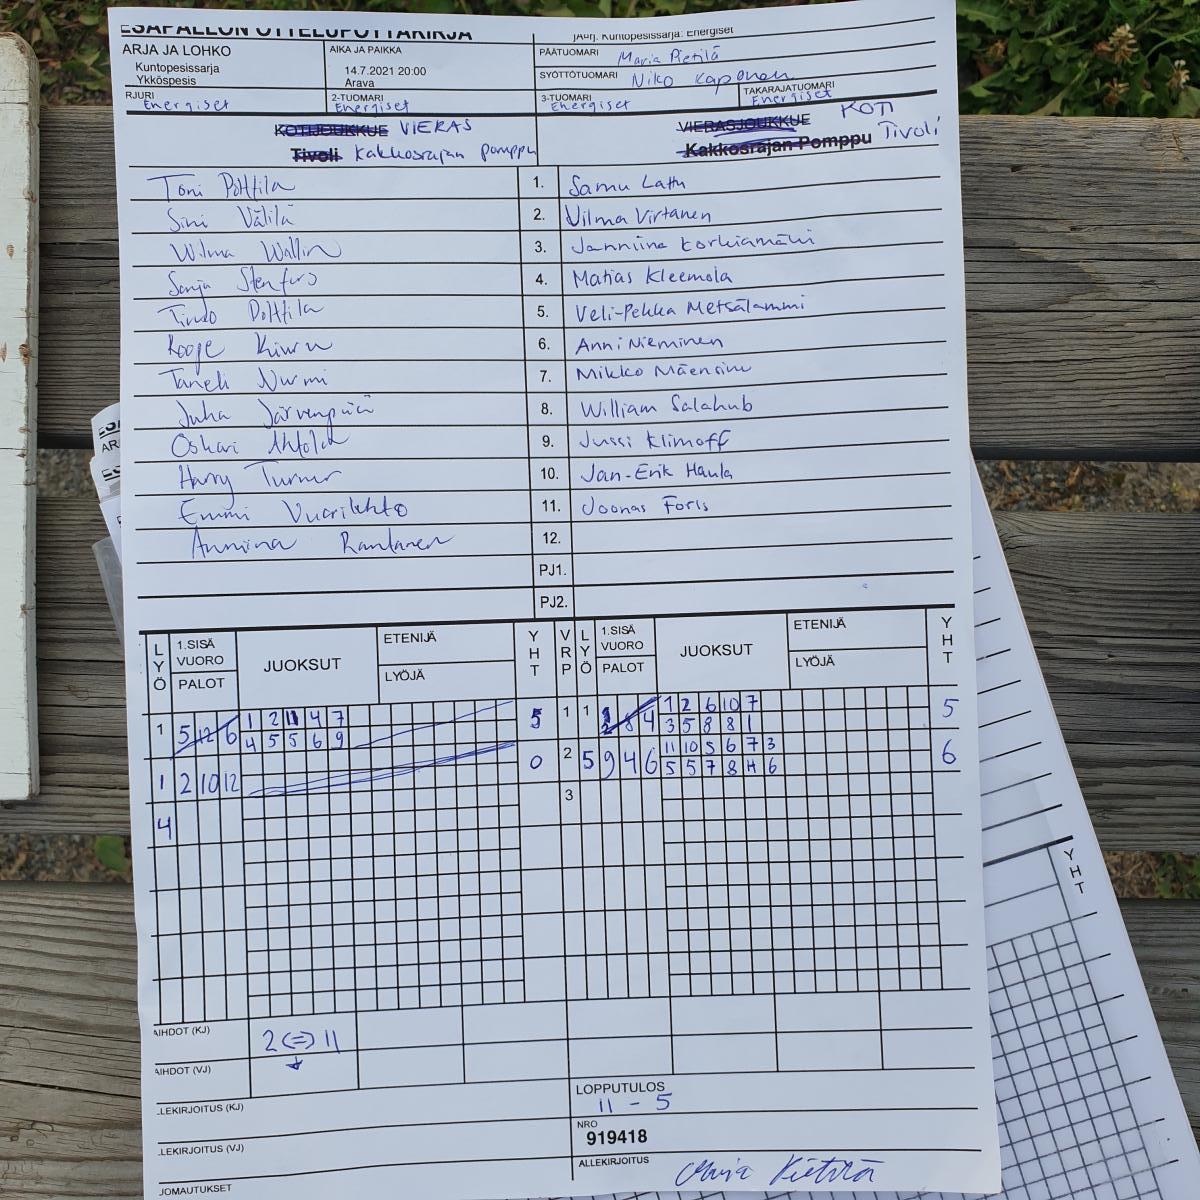 ESÄPALLON OTTELUPÖYTÄKIRJA
ARJA JA LOHKO
Kuntopesissarja
Ykköspesis
AIKA JA PAIKKA
14.7.2021 20:00
Arava
JAurj. Kuntopesissarja: Energiset
PÄÄTUOMARI Maria Pietilä
SYÖTTÖTUOMARI Niko Kaponen
RJURI Energiset
2-TUOMARI Energiset
3-TUOMARI Energiset
TAKARAJATUOMARI Energiset
KOTIJOUKKUE VIERAS
Tivoli Kakkosrajan pomppu
VIERASJOUKKUE KOTI
Kakkosrajan Pomppu Tivoli
Toni Polttila 1. Samu Lattu
Sini Välilä 2. Vilma Virtanen
Wilma Wallin 3. Janniina Korkiamäki
Sonja Stenfors 4. Matias Kleemola
Timo Polttila 5. Veli-Pekka Metsälammi
Roope 6. Anni Nieminen
Taneli Nurmi 7. Mikko Mäensivu
Juha Järvenpää 8. William Salahub
Oskari Ahtola 9. Jussi Klimoff
Harry Turner 10. Jan-Erik Haula
Emmi Vuorilehto 11. Joonas Foris
Anniina Rantanen 12.
PJ1.
PJ2.
LYÖ 1.SISÄ VUORO PALOT JUOKSUT ETENIJÄ LYÖJÄ YHT VRP LYÖ 1.SISÄ VUORO PALOT JUOKSUT ETENIJÄ LYÖJÄ YHT
1 2 11 4 7 1 2 6 10 7
1 5 12 6 5 1 1 8 4 5
4 5 5 6 9 3 5 8 8 1
11 10 5 6 7 3
1 2 10 12 0 2 5 9 4 6 6
5 5 7 8 4 6
4 3
AIHDOT (KJ) 2 <=> 11
AIHDOT (VJ)
LOPPUTULOS
11 - 5
LLEKIRJOITUS (KJ)
NRO
919418
LLEKIRJOITUS (VJ)
ALLEKIRJOITUS Maria Pietilä
JOMAUTUKSET
YHT